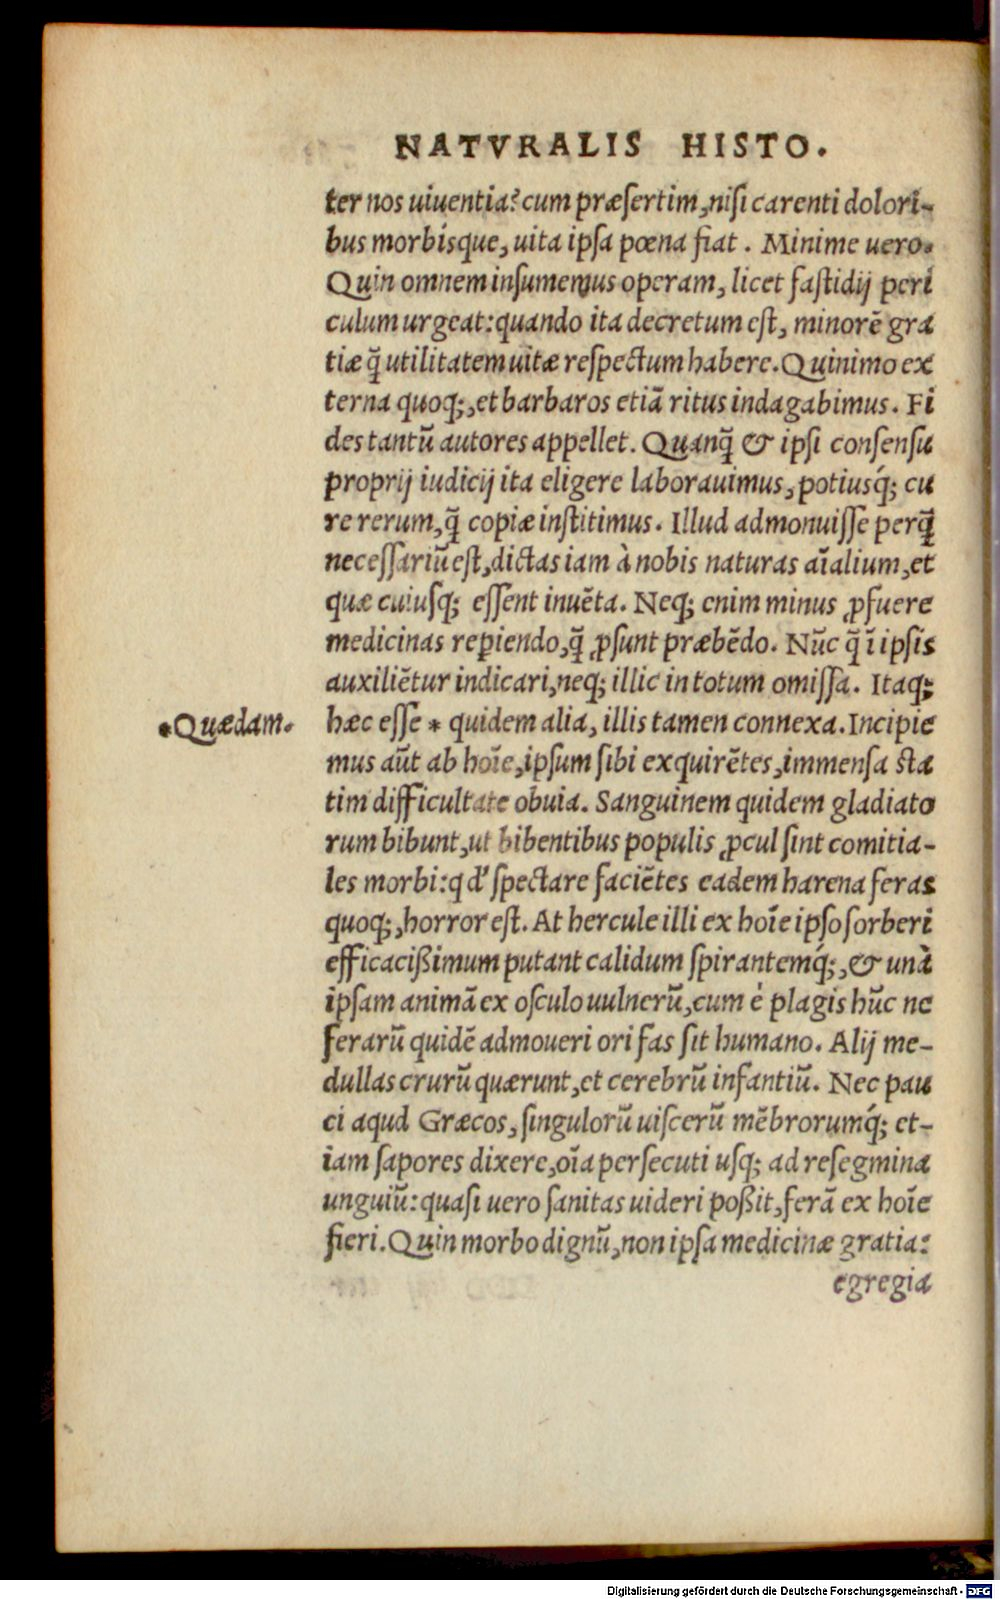 NATVRALIS HISTO.
ter nos uiuentia? cum præsertim, nisi carenti dolori-
bus morbisque, uita ipsa pœna fiat. Minime uero.
Quin omnem insumemus operam, licet fastidij peri
culum urgeat: quando ita decretum est, minorē gra
tiæ q̃ utilitatem uitæ respectum habere. Quinimo ex
terna quoq;, et barbaros etiā ritus indagabimus. Fi
des tantū autores appellet. Quanq̃ & ipsi consensu
proprij iudicij ita eligere laborauimus, potiusq́; cu
re rerum, q̃ copiæ institimus. Illud admonuisse perq̃
necessariū est, dictas iam à nobis naturas aīalium, et
quæ cuiusq; essent inuēta. Neq; enim minus ꝓfuere
medicinas reꝑiendo, q̃ ꝓsunt præbēdo. Nūc q̃ ī ipsis
auxiliētur indicari, neq; illic in totum omissa. Itaq;
*Quædam.
hæc esse * quidem alia, illis tamen connexa. Incipie
mus aūt ab hoīe, ipsum sibi exquirētes, immensa sta
tim difficultate obuia. Sanguinem quidem gladiato
rum bibunt, ut bibentibus populis ꝓcul sint comitia-
les morbi: qd' spectare faciētes eadem harena feras
quoq;, horror est. At hercule illi ex hoīe ipso sorberi
efficacißimum putant calidum spirantemq́;, & unà
ipsam animā ex osculo uulnerū, cum è plagis hūc ne
ferarū quidē admoueri ori fas sit humano. Alij me-
dullas crurū quærunt, et cerebrū infantiū. Nec pau
ci aqud Græcos, singulorū uiscerū mēbrorumq́; et-
iam sapores dixere, oīa persecuti usq; ad resegmina
unguiū: quasi uero sanitas uideri poßit, ferā ex hoīe
fieri. Quin morbo dignū, non ipsa medicinæ gratia:
egregia
Digitalisierung gefördert durch die Deutsche Forschungsgemeinschaft - DFG